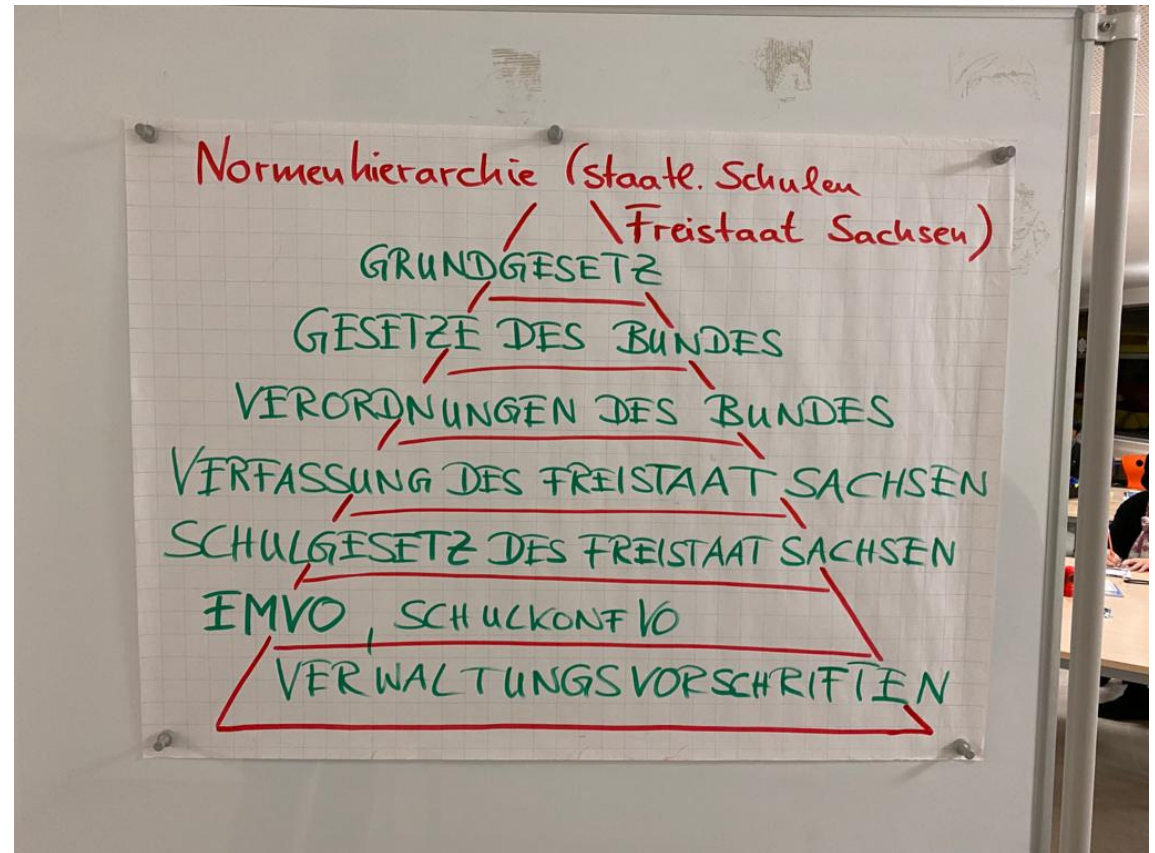 Normenhierarchie (staatl. Schulen
Freistaat Sachsen)
GRUNDGESETZ
GESETZE DES BUNDES
VERORDNUNGEN DES BUNDES
VERFASSUNG DES FREISTAAT SACHSEN
SCHULGESETZ DES FREISTAAT SACHSEN
EMVO, SCHULKONFVO
VERWALTUNGSVORSCHRIFTEN